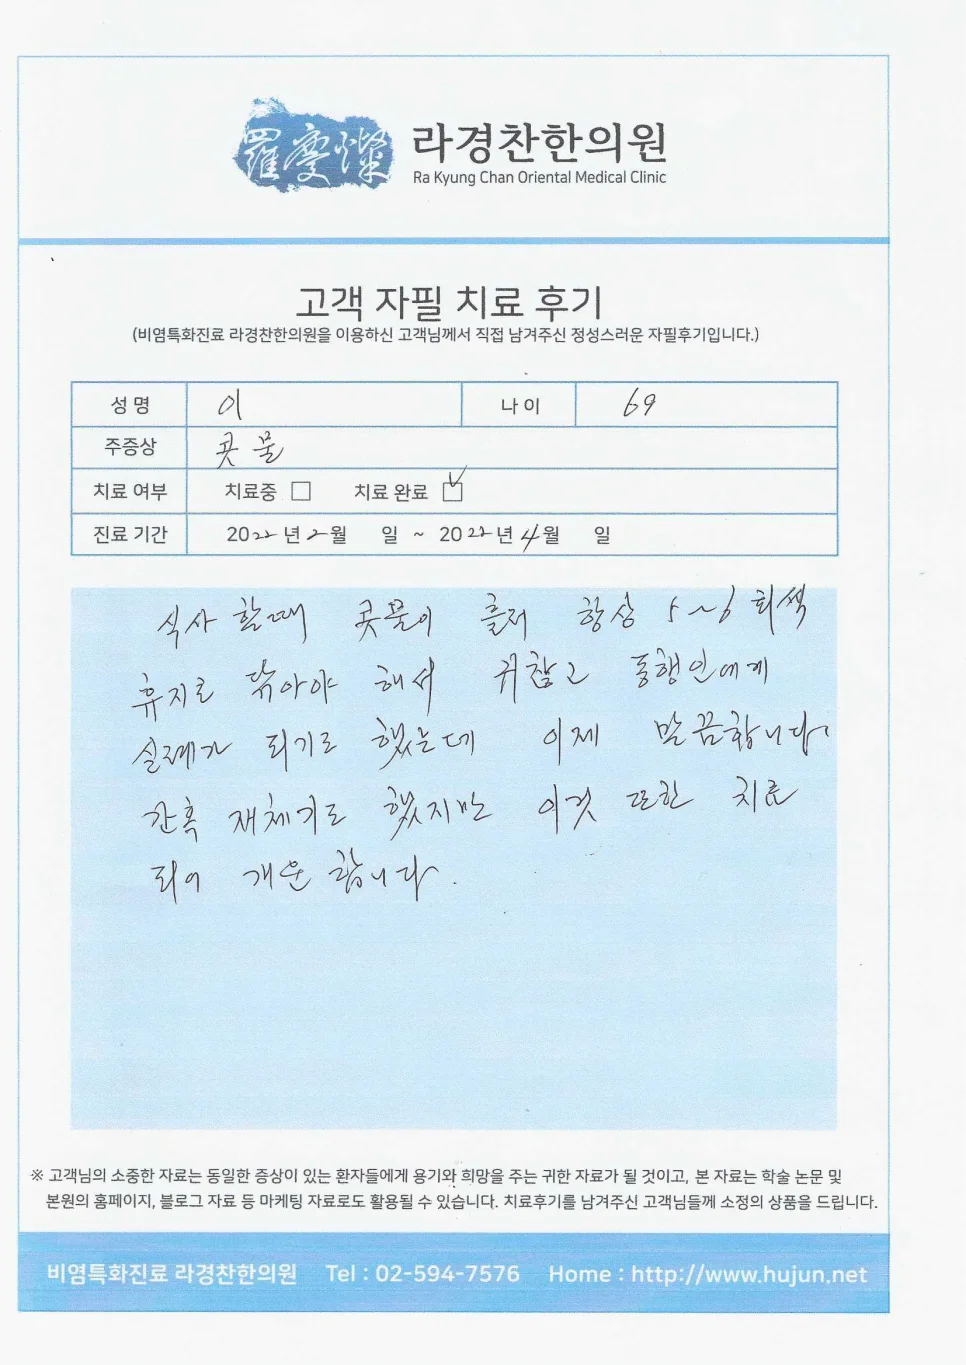 羅慶燦 라경찬한의원
Ra Kyung Chan Oriental Medical Clinic
고객 자필 치료 후기
(비염특화진료 라경찬한의원을 이용하신 고객님께서 직접 남겨주신 정성스러운 자필후기입니다.)
성 명 이 나 이 69
주증상 콧물
치료 여부 치료중 □ 치료 완료 ☑
진료 기간 2022년 2월 일 ~ 2022년 4월 일
식사 할때 콧물이 흘러 항상 5~6회씩
휴지로 닦아야 해서 귀찮고 동행인에게
실례가 되기도 했는데 이제 말끔합니다
간혹 재채기도 했지만 이것 또한 치료
되어 개운합니다.
※ 고객님의 소중한 자료는 동일한 증상이 있는 환자들에게 용기와 희망을 주는 귀한 자료가 될 것이고, 본 자료는 학술 논문 및
본원의 홈페이지, 블로그 자료 등 마케팅 자료로도 활용될 수 있습니다. 치료후기를 남겨주신 고객님들께 소정의 상품을 드립니다.
비염특화진료 라경찬한의원 Tel : 02-594-7576 Home : http://www.hujun.net